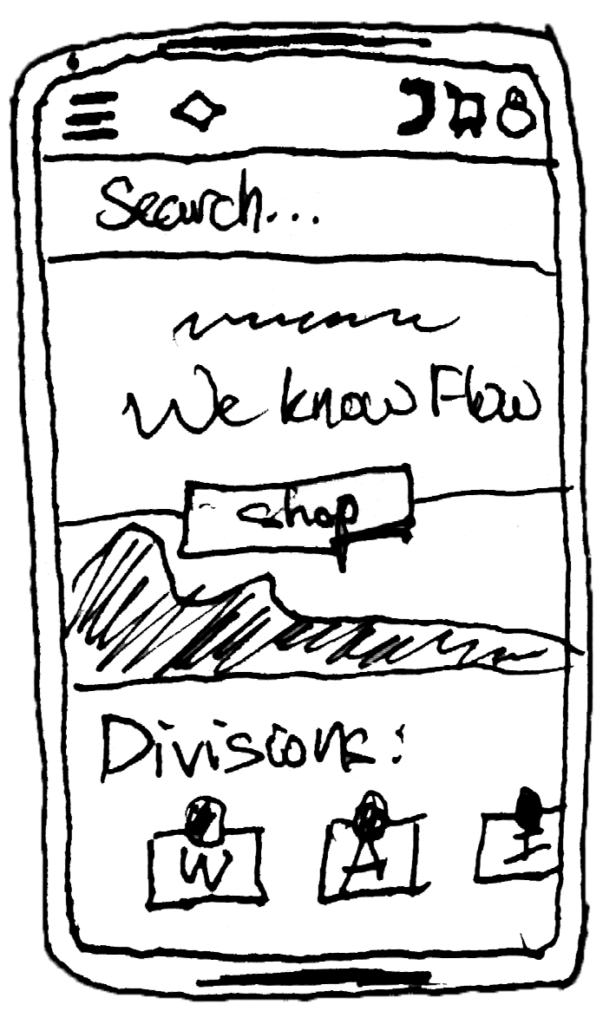 Search...
We know Flow
shop
Divisions:
W A I